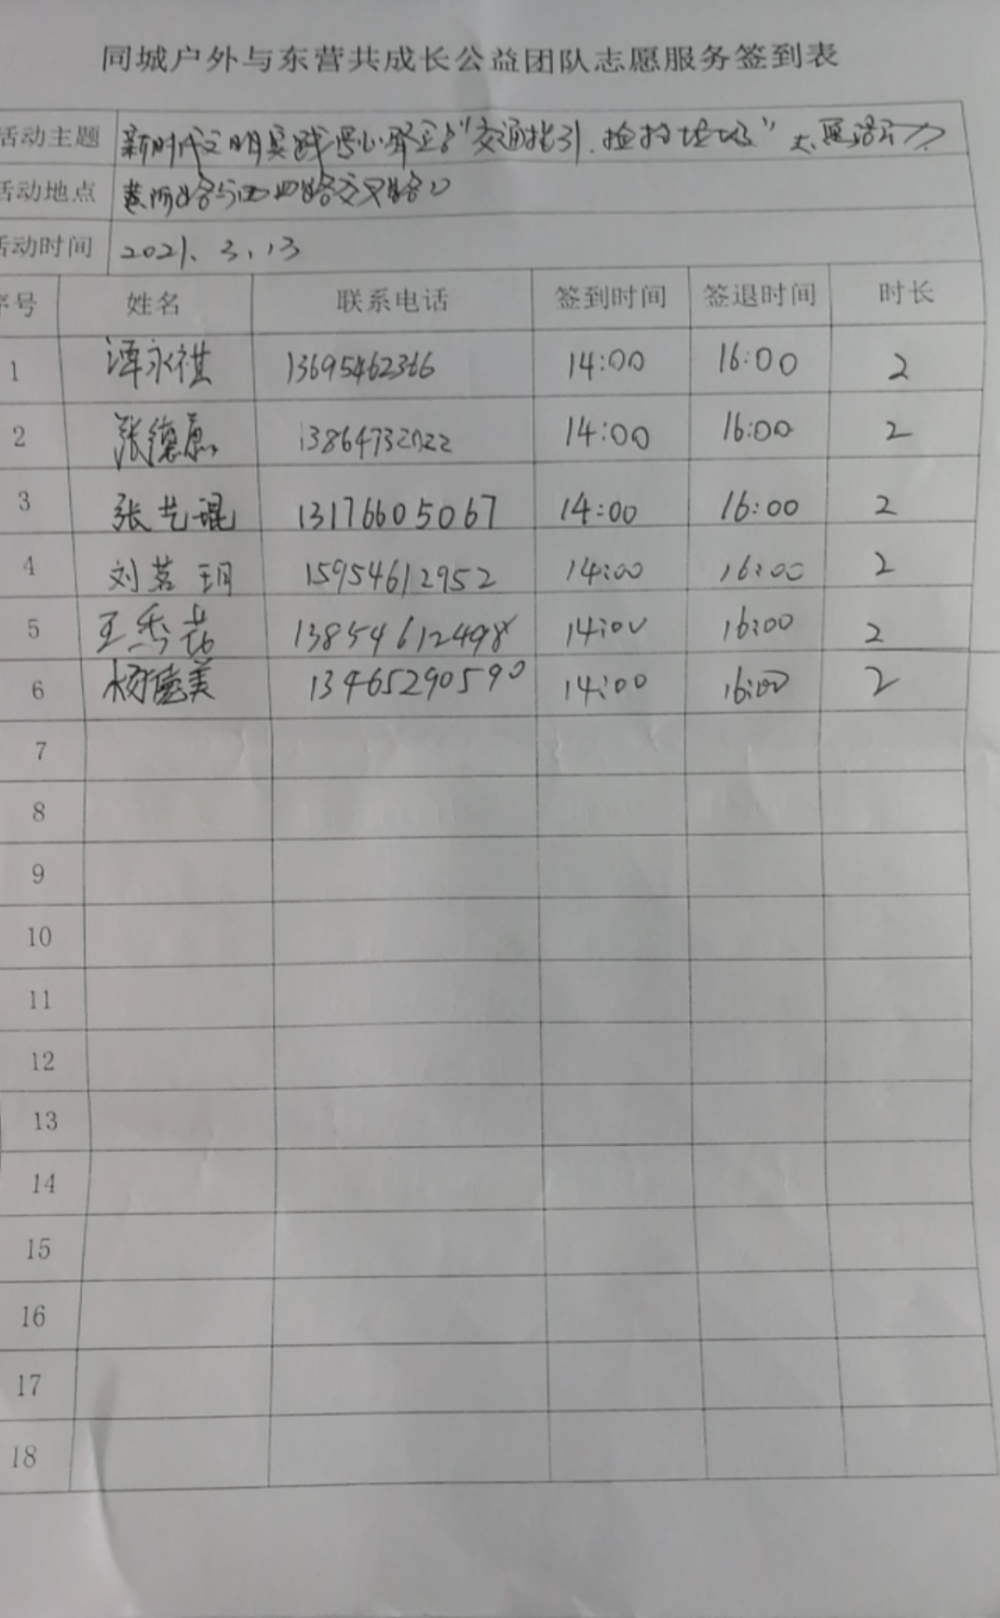 同城户外与东营共成长公益团队志愿服务签到表
活动主题 新时代文明实践爱心驿站"交通指引.捡拾垃圾"志愿活动
活动地点 黄河路与西四路交叉路口
活动时间 2021.3.13
序号 姓名 联系电话 签到时间 签退时间 时长
1 谭永祺 13695462366 14:00 16:00 2
2 张德 13864732022 14:00 16:00 2
3 张艺琨 13176605067 14:00 16:00 2
4 刘茗玥 15954612952 14:00 16:00 2
5 王秀 13854612498 14:00 16:00 2
6 杨德美 13465290590 14:00 16:00 2
7
8
9
10
11
12
13
14
15
16
17
18